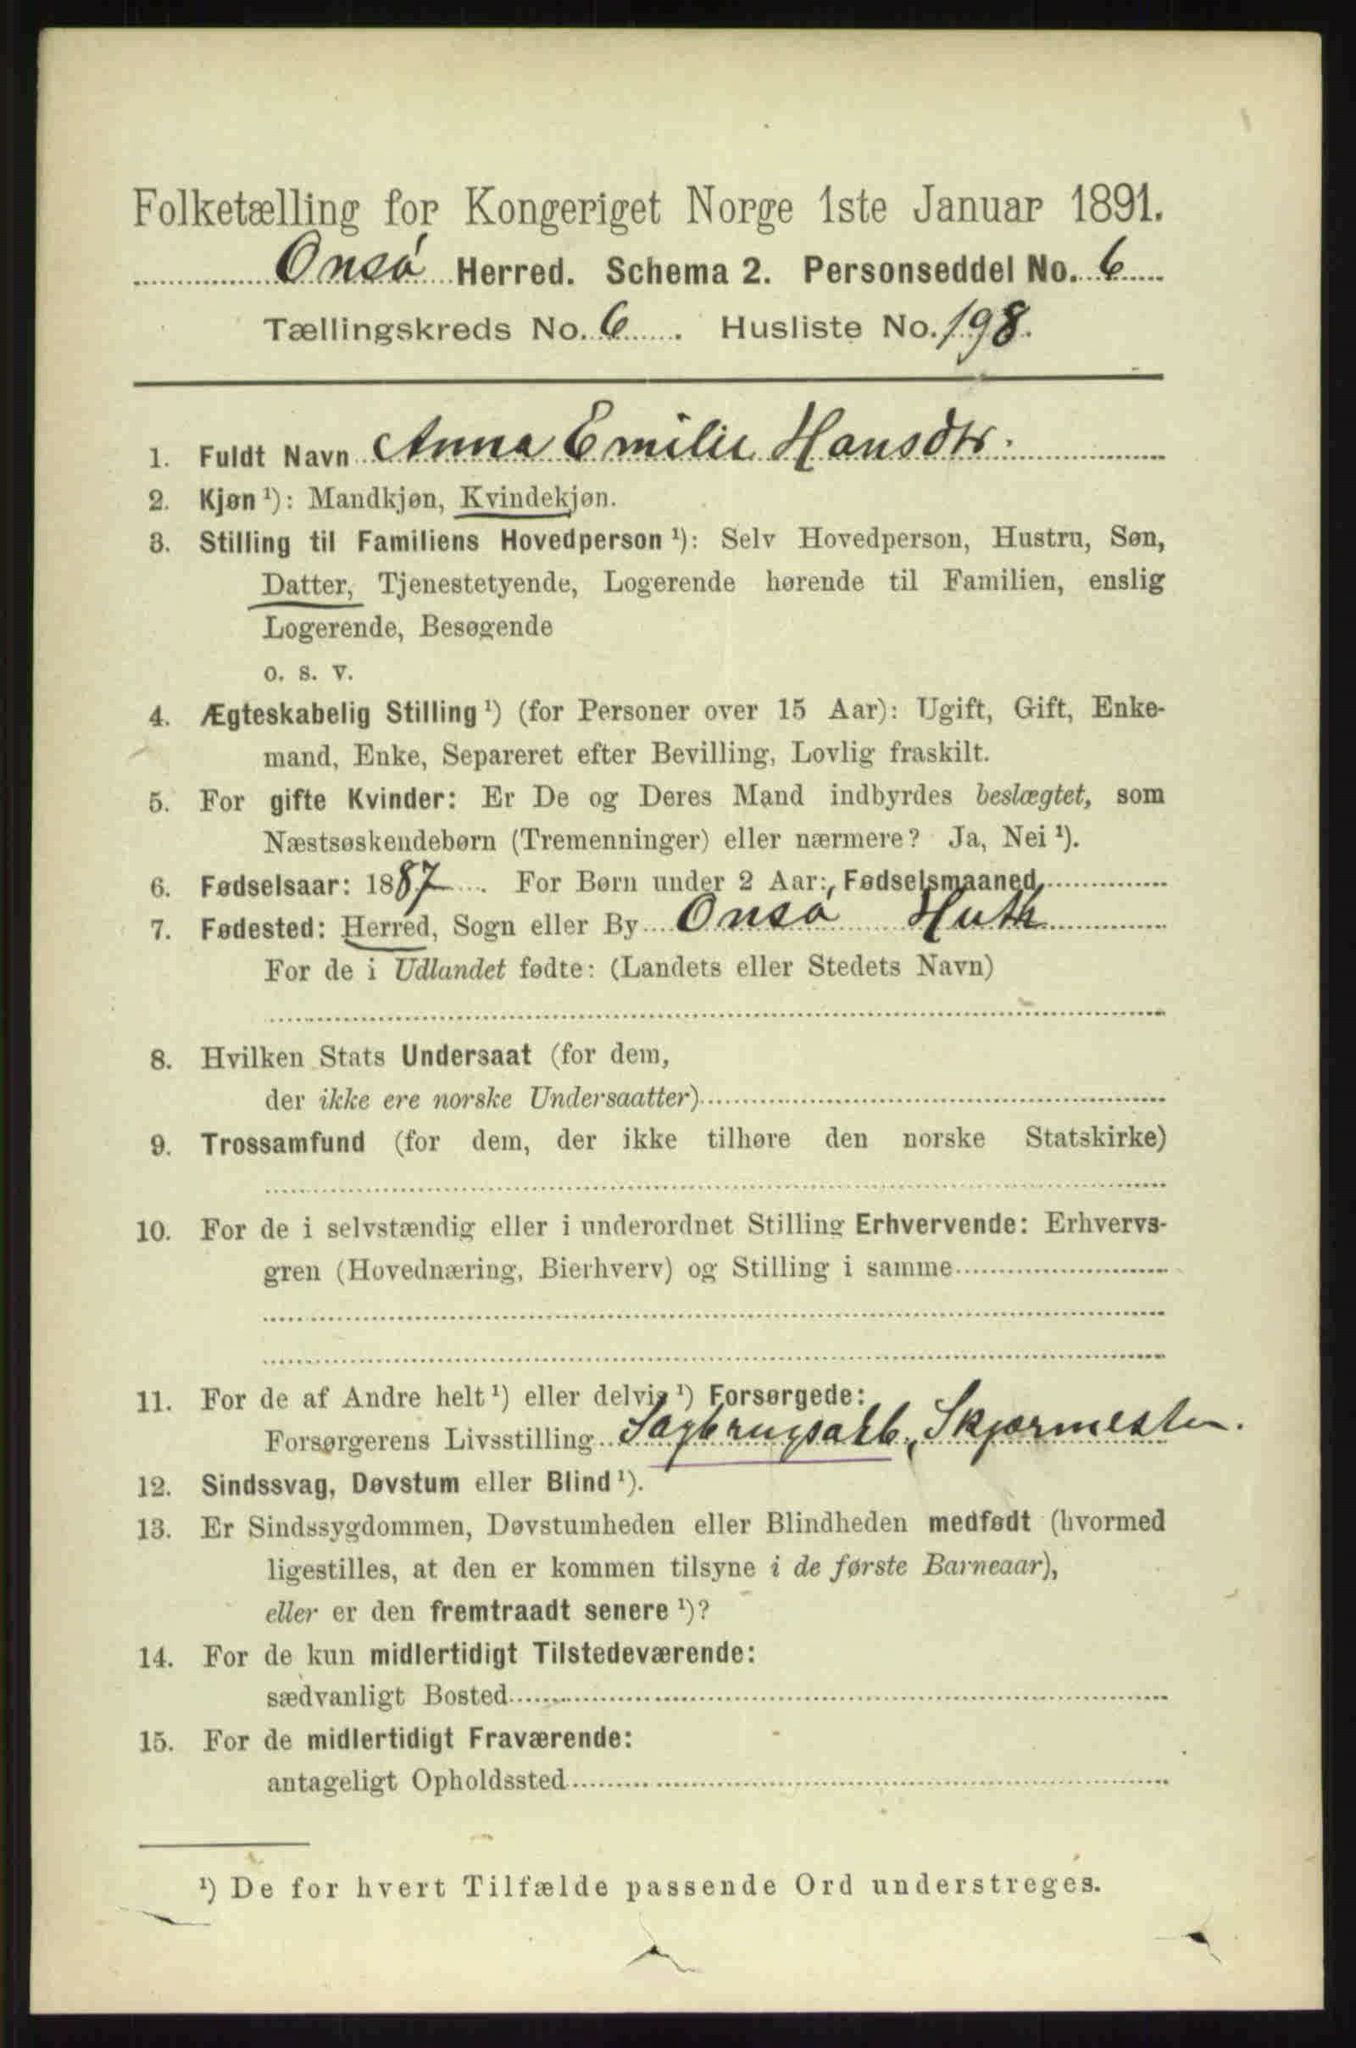 Folketælling for Kongeriget Norge 1ste Januar 1891.
Onsø Herred. Schema 2. Personseddel No. 6
Tællingskreds No. 6. Husliste No. 198.
1. Fuldt Navn Anna Emilie Hansdtr.
2. Kjøn ¹): Mandkjøn, Kvindekjøn.
3. Stilling til Familiens Hovedperson ¹): Selv Hovedperson, Hustru, Søn,
Datter, Tjenestetyende, Logerende hørende til Familien, enslig
Logerende, Besøgende
o. s. v.
4. Ægteskabelig Stilling ¹) (for Personer over 15 Aar): Ugift, Gift, Enke-
mand, Enke, Separeret efter Bevilling, Lovlig fraskilt.
5. For gifte Kvinder: Er De og Deres Mand indbyrdes beslægtet, som
Næstsøskendebørn (Tremenninger) eller nærmere? Ja, Nei ¹).
6. Fødselsaar: 1887. For Børn under 2 Aar: Fødselsmaaned
7. Fødested: Herred, Sogn eller By Onsø Huth
For de i Udlandet fødte: (Landets eller Stedets Navn)
8. Hvilken Stats Undersaat (for dem,
der ikke ere norske Undersaatter)
9. Trossamfund (for dem, der ikke tilhøre den norske Statskirke)
10. For de i selvstændig eller i underordnet Stilling Erhvervende: Erhvervs-
gren (Hovednæring, Bierhverv) og Stilling i samme
11. For de af Andre helt ¹) eller delvis ¹) Forsørgede:
Forsørgerens Livsstilling Sagbrugsarb, Skjærmester.
12. Sindssvag, Døvstum eller Blind ¹).
13. Er Sindssygdommen, Døvstumheden eller Blindheden medfødt (hvormed
ligestilles, at den er kommen tilsyne i de første Barneaar),
eller er den fremtraadt senere ¹)?
14. For de kun midlertidigt Tilstedeværende:
sædvanligt Bosted
15. For de midlertidigt Fraværende:
antageligt Opholdssted
¹) De for hvert Tilfælde passende Ord understreges.